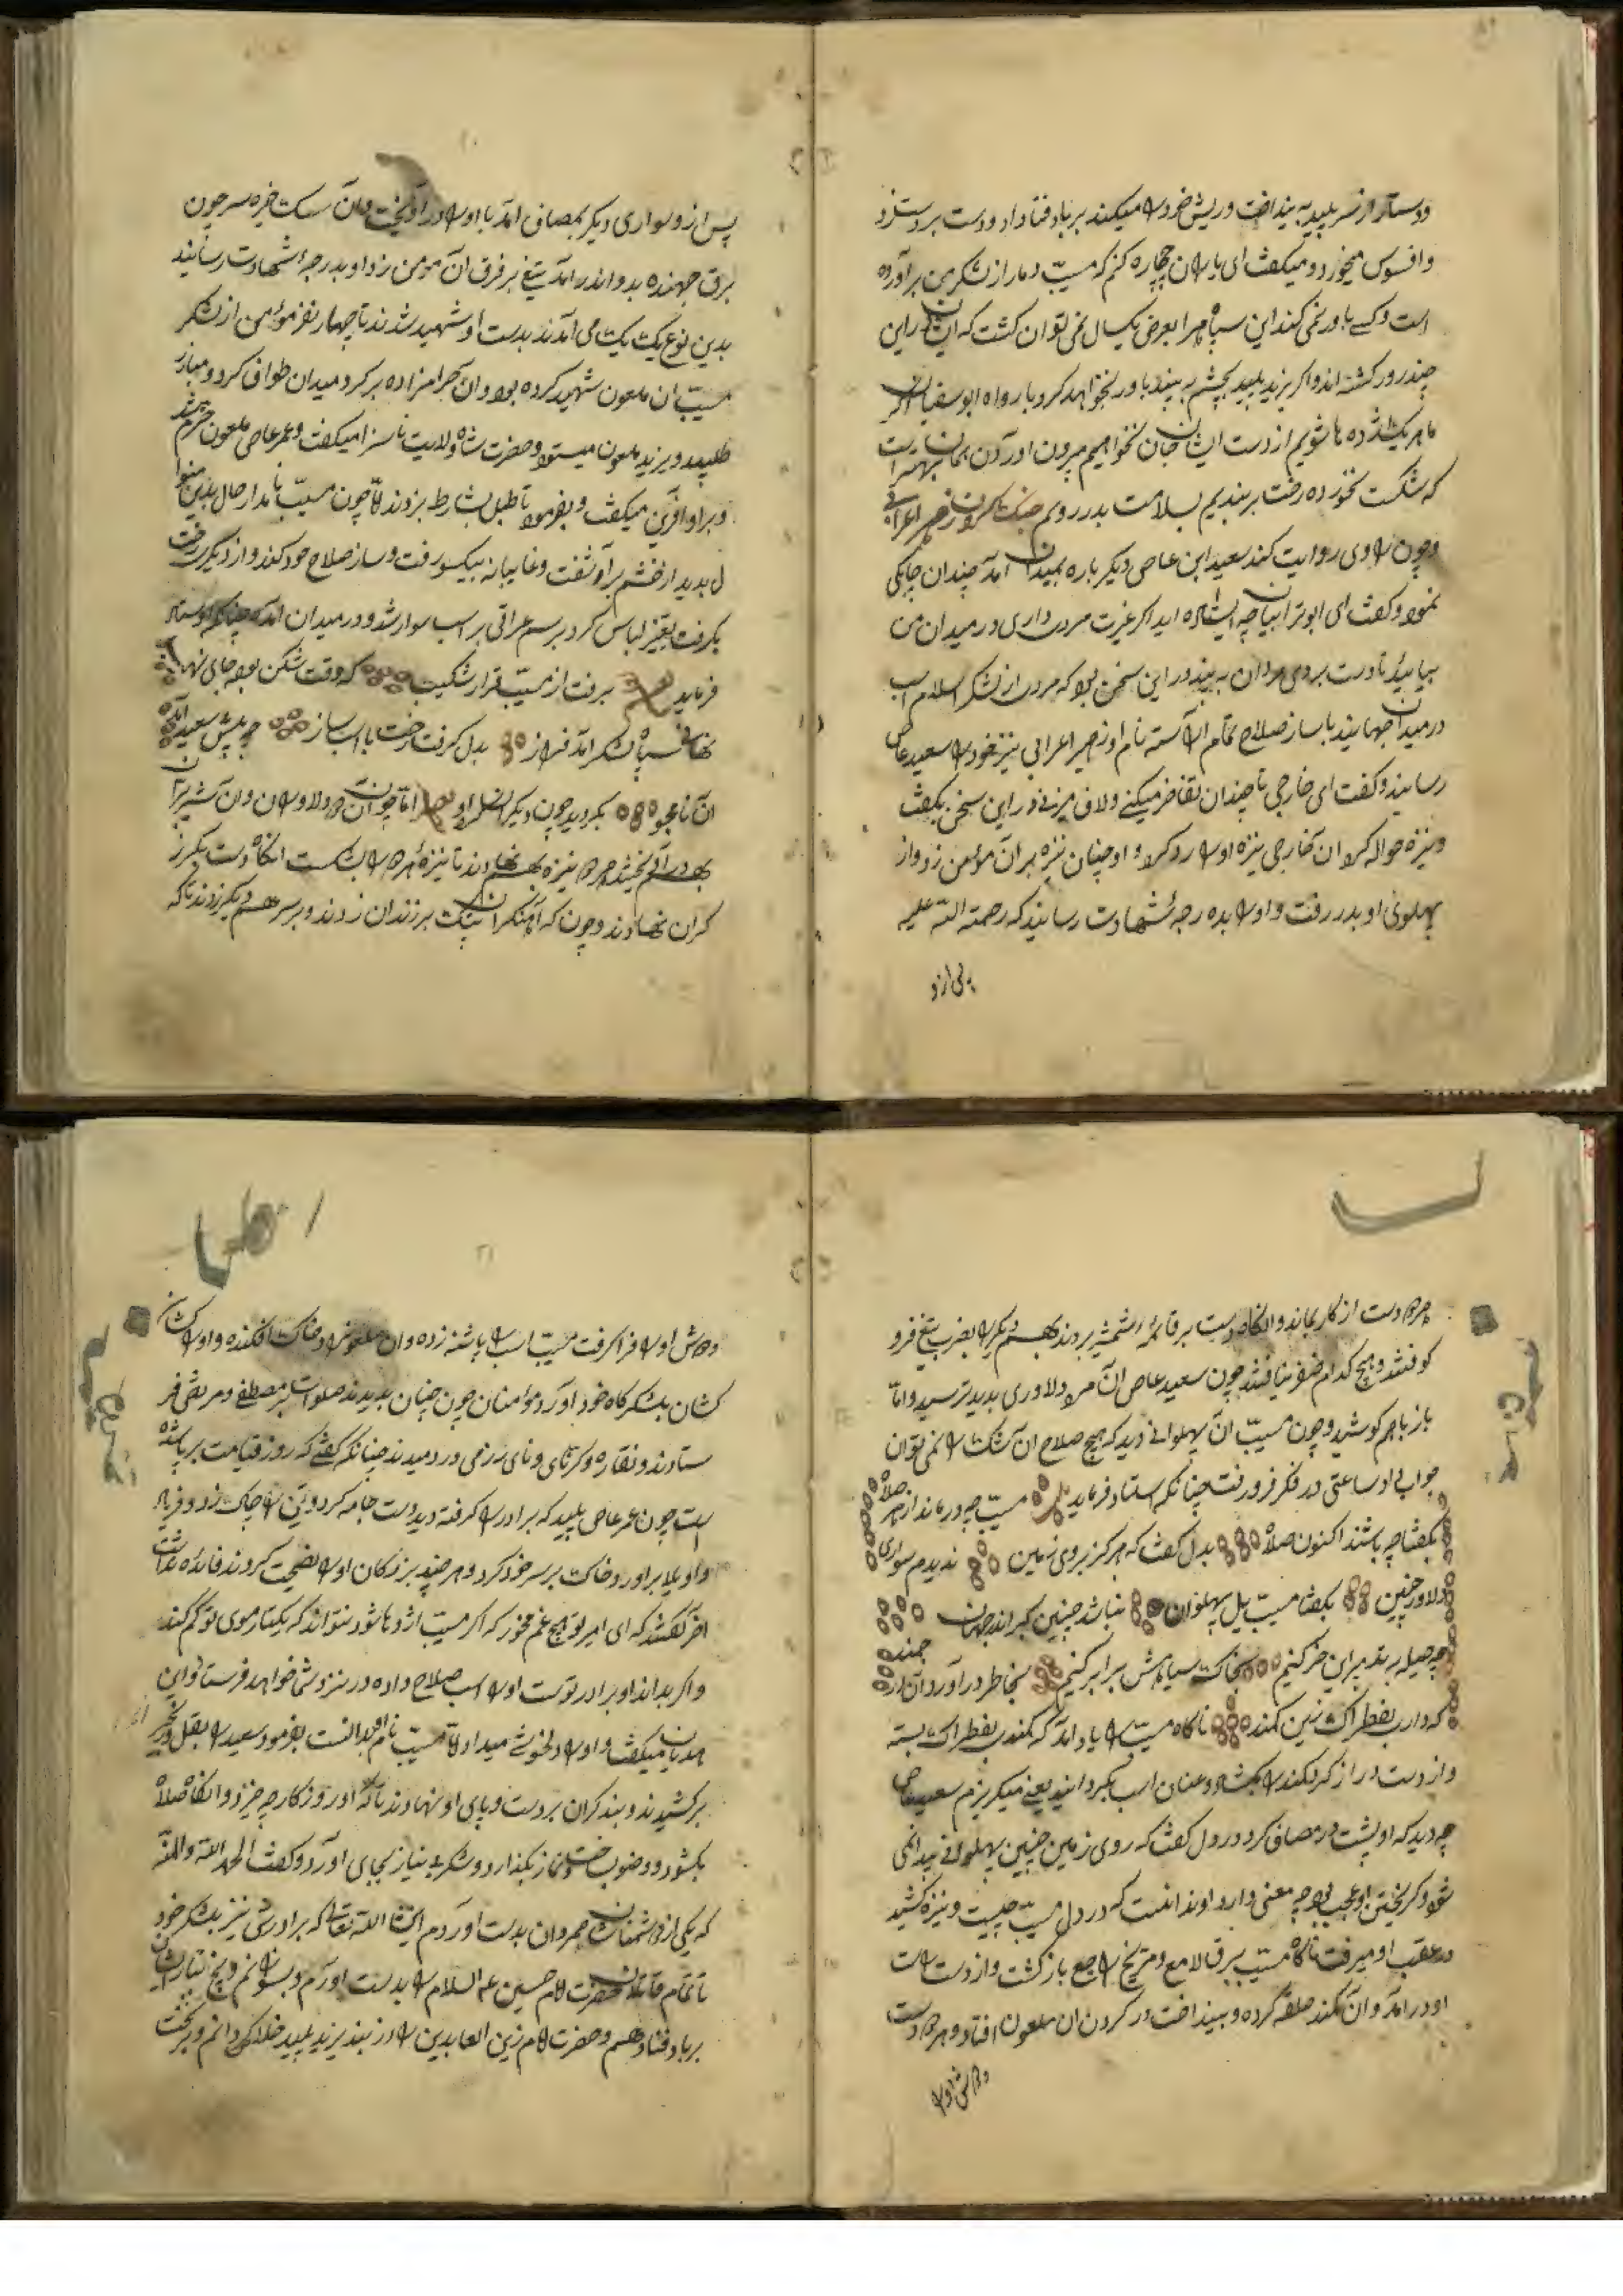 ودستار از سر پلید به بینداخت وریش خود را میکند بر باد فنا داد ودست بر دست زد
وافسوس میخورد و میکفت ای یاران چه چاره کنم که مسیب دمار از لشکر من برآورده
است وکسے باور نمی کند این سپاه مرا بعرض یکسال نمی توان کشت که ایشان در این
چند روز کشته اند واکر یزید پلید بچشم به بیند باور نخواهد کرد یا رواه ابوسفیان اکر
ما هر یک اژده ها شویم از دست ایشان جان نخواهیم بیرون اوردن همان بهتر است
که شکست نخورده رخت بر بندیم بسلامت بدر رویم جنک کردن زهیر اعرابی
وچون راوی روایت کند سعید ابن عاص دیکر باره بمیدان امد چندان چابکی
نمود وکفت ای ابوترابیان چه ایستاده اید اکر غیرت مردی داری در میدان من
بیایید تا دست بردی مردان به بیند در این سخن بود که مردی از لشکر اسلام اسب
در میدان جهانید با ساز صلاح تمام اراسته نام او زهیر اعرابی نیز خود را بسعید عاص
رسانید وکفت ای خارجی تا چندان تفاخر میکنے ولاف میزنے در این سخن بکفت
ونیزه حواله کرد ان خارجی نیزه او را رد کرد و او چنان نیزه بر آن مؤمن زد واز
پهلوی او بدر رفت و او را بده رجه شهادت رسانید که رحمة الله علیه
پس از و
پس از و سواری دیکر بمصاف امد با او را در آویخت وان سک خیره سر چون
برق جهنده بدو اندر امد تیغ بر فرق ان مومن زد و او بدرجه شهادت رسانید
بدین نوع یک یک می امدند بدست او شهید شدند تا چهار نفر موئمن از لشکر
مسیب ان ملعون شهید کرده بود وان حرامزاده بر کرد میدان طواف کرد و مبارز
طلبید و یزید ملعون میستود وحضرت شاه ولایت ناسزا میکفت وعمر عاص ملعون خرم شد
وبر او آفرین میکفت و بفرمود تا طبل بشارط بزدند امّا چون مسیّب نامدار حال بدین منوا
ل بدید از خشم بر آوشفت وغایبانه بیکسو رفت وساز صلاح خود کند واز دیکری رخت
بکرفت بتغیز لباس کرد برسم عراقی بر اسب سوار شد ودر میدان امد چنانکه اوستاد
فرماید برفت از مسیّب قرار شکیب که وقت شکن بود جای نهیب
نهانی سپاه لشکر امد فراز بدل کرفت رخت با اسب ساز چه پیش سعید امد
ان نامجو بکردید چون دیکر امّا چون ان دو دلاوران وان شیر نران
بهم در آویخیتند هر دو نیزه بهم نهادند تا نیزهٔ هر دو را بشکست انکاه دست بکرز
کران نهادند وچون که اهنکران پتک بر زندان زدند وبر سر هم دیکر زدند تا که
هر دو دست از کار بماند وانکاه دست بر قائمهٔ شمشیر بردند بهم دیکر را بضرب تیغ فرو
کوفتند و هیچ کدام ضفر نیافتند چون سعید عاص ان مرد ودلاوری بدید ترسید وامّا
باز باهم کوشید وچون مسیّب ان پهلوانی دید که هیچ صلاح ان سک را نمی توان
جواب او ساعتی در فکر فرو رفت چنانکه استاد فرماید مسیّب چه درماند از هر صلاه
بکفتا چه باشند اکنون صلاه بدل کفت که هرکز بروی زمین ندیدم سواری
دلاور چنین بکفتا مسیّب یل پهلوان نباشد چنین کبر اندر جهان
چه حیله به تدبیر این خر کنیم بخاک سیاه هش برابر کنیم بخاطر در آورد آن ارجمند
که دارب بفطراک زین کمند ناکاه مسیّب را یاد امد که کمندی بفطراک بسته
واز دست دراز کرد کمند را بکشاد وعنان اسب بکردانید یعنے میکریزم سعید عاص
چه دید که او پشت در مصاف کرد در دل کفت که روی زمین چنین پهلوانے پیدا نمی
شود وکریختن او عجب بود چه معنی دارد او ندانست که در دل مسیّب چیست ونیزه کشید
در عقب او میرفت ناکاه مسیّب برق لامع ومریخ راجع باز کشت واز دست راست
او در امد وان کمند حلقه کرده وبینداخت در کردن ان ملعون افتاد و هر دو دست
ودوش او را
ودوش او را فرا کرفت مسیّب اسب را پاشنه زده وان ملعون را در خاک افکنده و او را کشان
کشان بلشکر کاه خود اورد موامنان چون چنان بدیدند صلوات بر مصطفی ومرتضی فر
ستادند و نقاره وکرنای ونای رزمی در دمیدند چنانکه کفتے که روز قیامت بر پا شده
است چون عمر عاص پلید که برادر را کرفته دید دست جامه کرد وتن را چاک زد و فریاد
واویلا بر اورد وخاک بر سر خود کرد وهر چند بزرکان او را نصیحت کردند فائده نداشت
اخر کفتند که ای امیر تو هیچ غم مخور که اکر مسیّب اژدها شود نتواند که یکتار موی تو کم کند
واکر بداند او برادر توست او را اسب صلاح داده در نزد شما خواهد فرستاد واین
هدیان میکفتند و او را دلخوشے میداد امّا مسیّب نام او بدانست بفرمود سعید را بقل و زنجیر
برکشیدند و بند کران بر دست و پای او نهادند تا که او روز کار چه خیزد وانکاه صلاه
بکشود و وضو بساخت ونماز بکذارد و شکر بے نیاز بجای اورد و کفت الحمد الله والمنة
که یکی از دشمنان مردان بدست اوردم انشا الله تعالے که برادرش نیز بلشکر خود
تا تمام قاتلان حضرت امام حسین علیه السلام را بدست اورم وبسوزانم وبیخ تبار ایشان
بر باد فنا دهم و حضرت امام زین العابدین را از بند یزید پلید خلاص کردانم و بر تخت